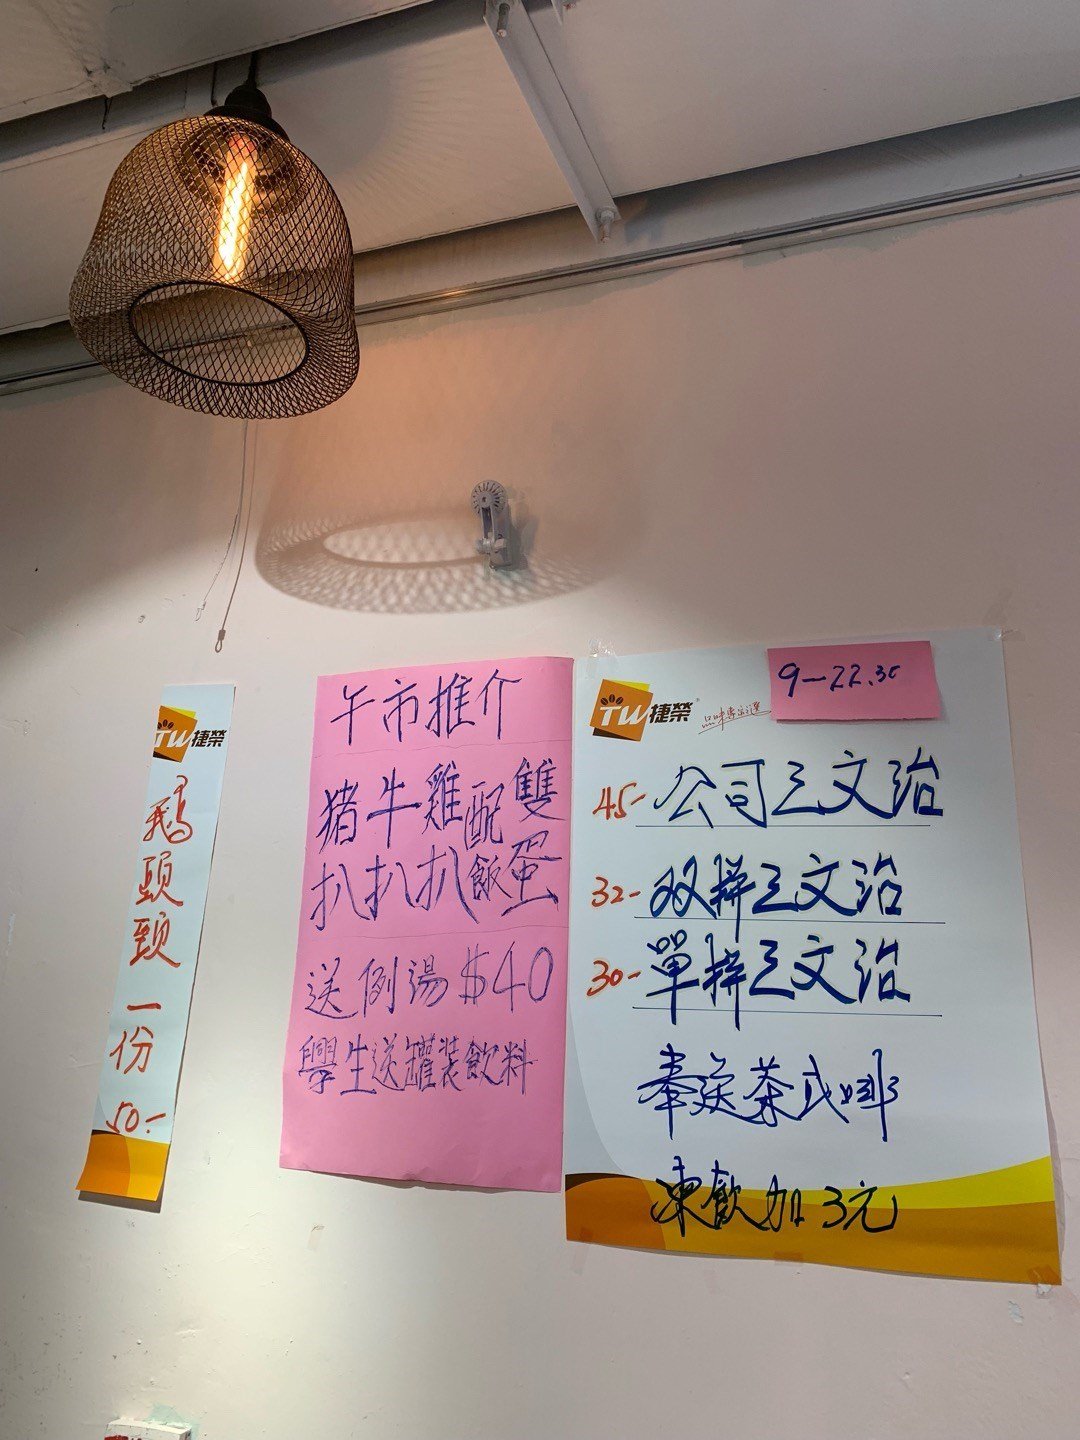 TW捷榮
鵝頭頸一份 50-
午市推介
猪牛雞配雙
扒扒扒飯蛋
送例湯$40
學生送罐装飲料
9-22.30
TW捷榮
品味專家之選
45- 公司三文治
32- 双拼三文治
30- 單拼三文治
奉送茶或啡
凍飲加3元